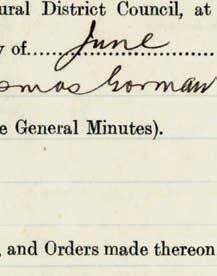 ural District Council, at
y of......June..........
omas Gorman
e General Minutes).
, and Orders made thereon